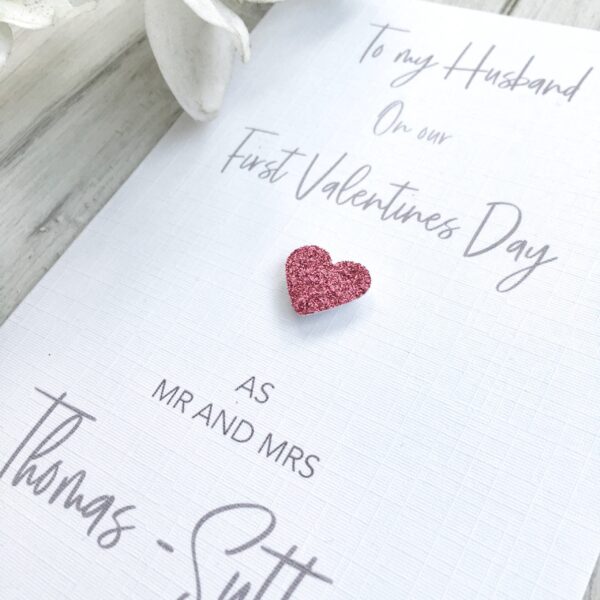 To my Husband
On our
First Valentines Day
AS
MR AND MRS
Thomas -